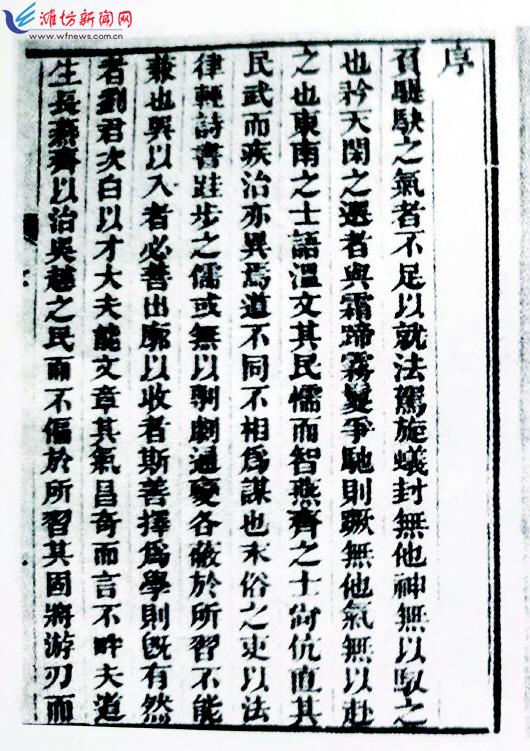 潍坊新闻网
www.wfnews.com.cn
序
負駃騠之氣者不足以就法駕旋蟻封無他神無以馭之
也矜天閑之選者與霜蹄霧鬣爭馳則蹶無他氣無以赴
之也東南之士語溫文其民懦而智燕齊之士尚伉直其
民武而疾治亦異焉道不同不相爲謀也末俗之吏以法
律輕詩書跬步之儒或無以剸劇通變各蔽於所習不能
兼也與以入者必善出廓以收者斯善擇爲學則旣有然
者劉君次白以才大夫能文章其氣昌奇而言不畔夫道
生長燕齊以治吳越之民而不偏於所習其固將游刃而